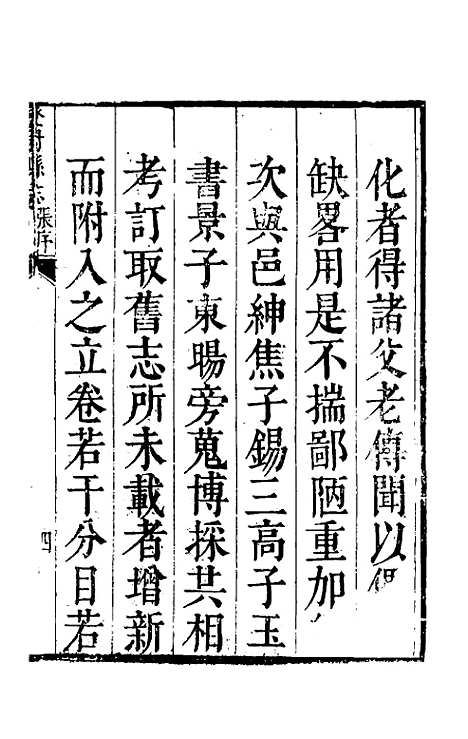 化者得諸父老傳聞以
缺畧用是不揣鄙陋重加
次與邑紳焦子錫三高子玉
書景子東暘旁蒐博採共相
考訂取舊志所未載者增新
而附入之立卷若干分目若
縣志 張序
四